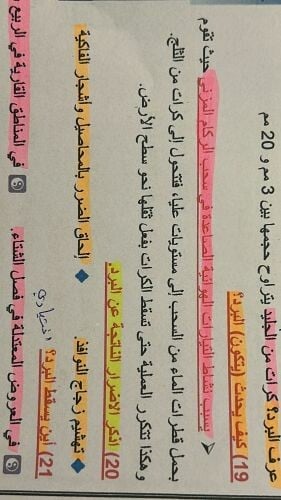 عرف البرد؟ كرات من الجليد يتراوح حجمها بين 3 مم و 20 مم
19) كيف يحدث (يتكون) البرد؟
بسبب نشاط التيارات الهوائية الصاعدة في سحب الركام المزني حيث تقوم
بحمل قطرات الماء من السحب إلى مستويات عليا، فتتحول إلى كرات من الثلج.
وهكذا تتكرر العملية حتى تسقط الكرات بفعل ثقلها نحو سطح الأرض.
20) اذكر الأضرار الناتجة عن البرد
إلحاق الضرر بالمحاصيل وأشجار الفاكهة
تهشيم زجاج النوافذ.
21) أين يسقط البرد؟
في المناطق القارية في الربيع
في العروض المعتدلة في فصل الشتاء.